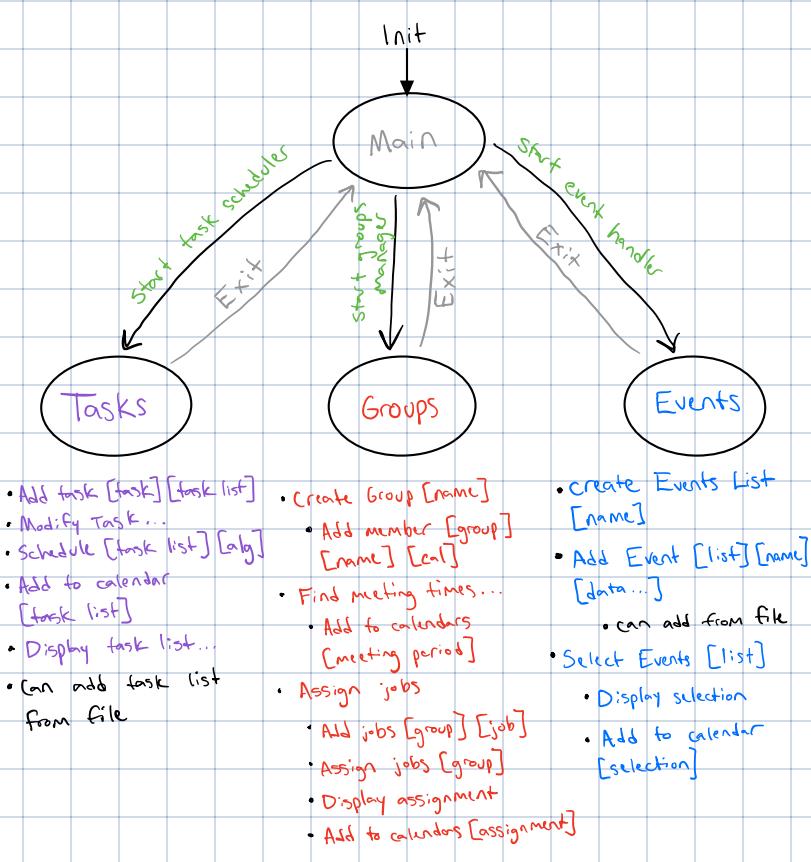 Init
Main
Start task scheduler
Exit
Start groups
manager
Exit
Start event handler
Exit
Tasks
Groups
Events
• Add task [task] [task list]
• Modify Task...
• Schedule [task list] [alg]
• Add to calendar
[task list]
• Display task list...
• Can add task list
from file
• Create Group [name]
• Add member [group]
[name] [cal]
• Find meeting times...
• Add to calendars
[meeting period]
• Assign jobs
• Add jobs [group] [job]
• Assign jobs [group]
• Display assignment
• Add to calendars [assignment]
• Create Events List
[name]
• Add Event [list] [name]
[data...]
• can add from file
• Select Events [list]
• Display selection
• Add to calendar
[selection]